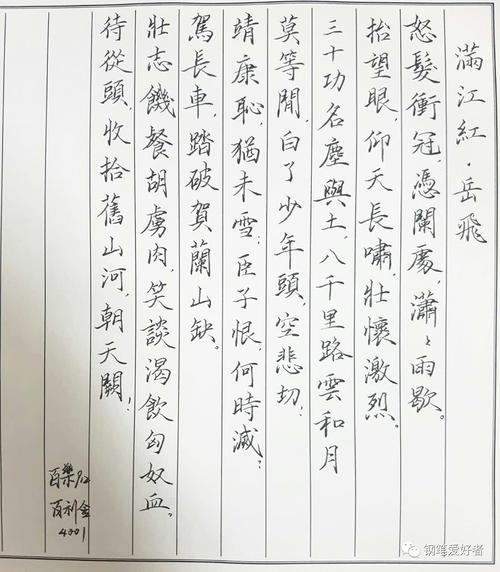 滿江紅·岳飛
怒髮衝冠,憑闌處,瀟々雨歇。
抬望眼,仰天長嘯,壯懷激烈。
三十功名塵與土,八千里路雲和月
莫等閒,白了少年頭,空悲切;
靖康恥,猶未雪;臣子恨,何時滅;
駕長車,踏破賀蘭山缺。
壯志饑餐胡虜肉,笑談渴飲匈奴血。
待從頭,收拾舊山河,朝天闕!
百樂
百利金
4001
钢笔爱好者